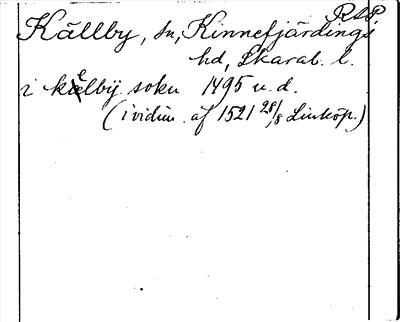 RAP
Källby, sn, Kinnefjärdings
hd, Skarab. l.
i kælbÿ sokn 1495 u. d.
(i vidim. af 1521 28/8 Linköp.)